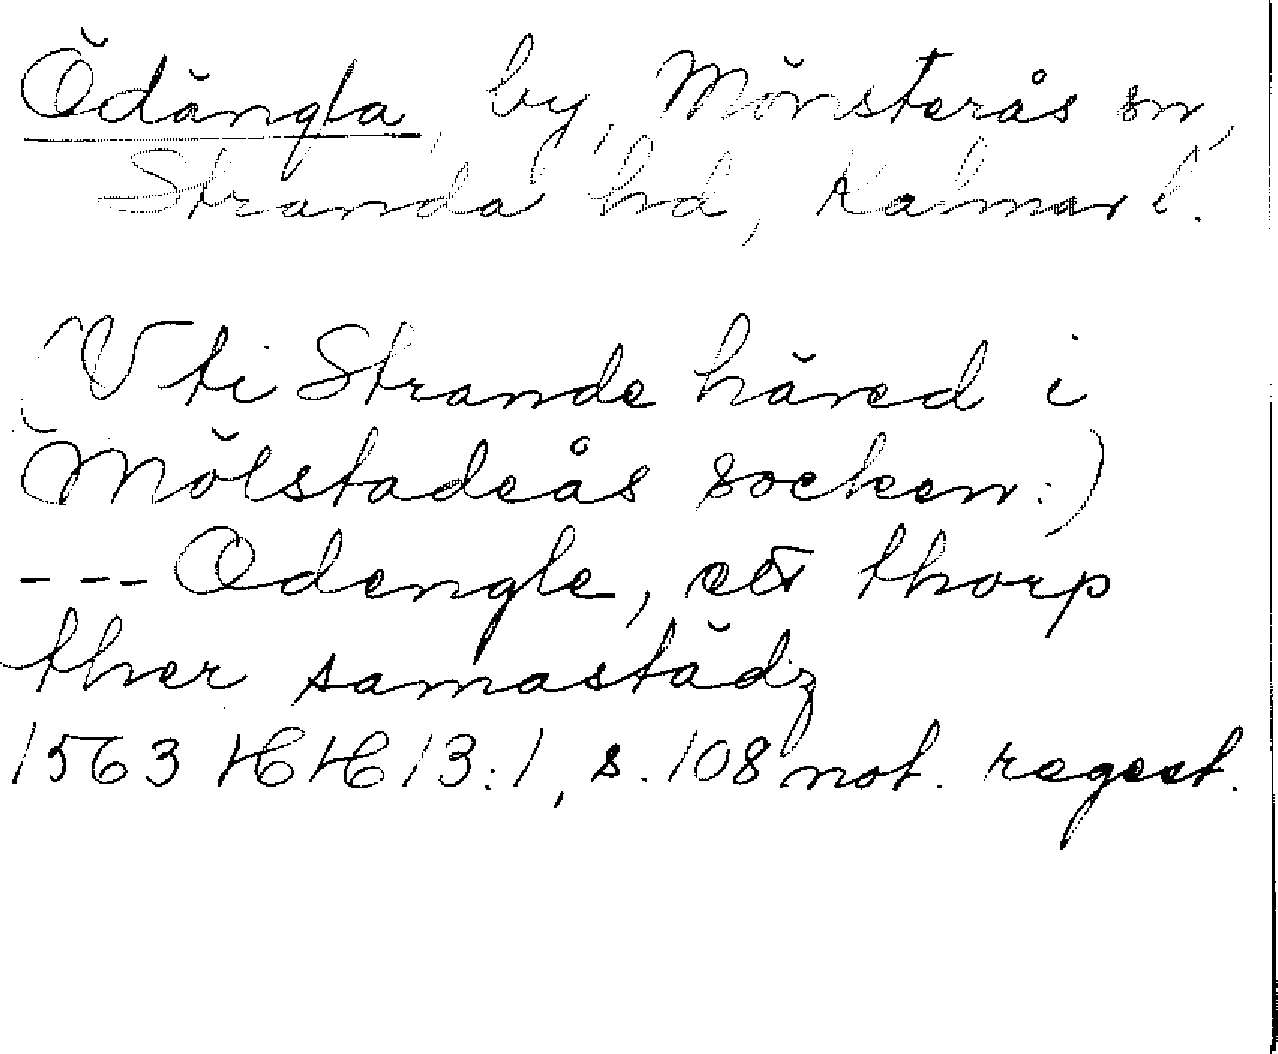 Ödängla, by, Mönsterås sn,
Stranda hd, Kalmar l.
(V ti Strande häred i
Mölstadeås socken:)
--- Odengle, ett thorp
ther samastädz
1563 HH 13:1, s. 108 not. regest.